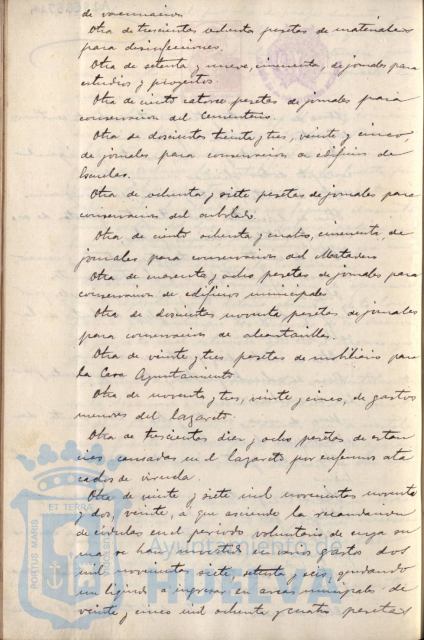 de vacunacion.
Otra de trescientas ochenta pesetas de materiales
para desinfecciones.
Otra de setenta y nueve, cincuenta, de jornales para
estudios y proyectos.
Otra de ciento catorce pesetas de jornales para
conservacion del Cementerio.
Otra de doscientas treinta y tres, veinte y cinco,
de jornales para conservacion de edificios de
Escuelas.
Otra de ochenta y siete pesetas de jornales para
conservacion del arbolado.
Otra, de ciento ochenta y cuatro, cincuenta, de
jornales para conservacion del Matadero
Otra de cuarenta y ocho pesetas de jornales para
conservacion de edificios municipales
Otra de doscientas noventa pesetas de jornales
para conservacion de alcantarillas.
Otra de veinte y tres pesetas de mobiliario para
la Casa Ayuntamiento.
Otra de noventa y tres, veinte y cinco, de gastos
menores del lazareto.
Otra de trescientas diez y ocho pesetas de estan
cias causadas en el lazareto por enfermos ata
cados de viruela.
Otra de veinte y siete mil novecientas noventa
y dos, veinte, a que asciende la recaudacion
de cédulas en el periodo voluntario de cuya su
ma se han invertido en varios gastos dos
mil novecientas siete, setenta y seis, quedando
un líquido a ingresar en arcas municipales de
veinte y cinco mil ochenta y cuatro pesetas
PORTUS MARIS
ET TERRÆ
CUSTODIA
Ayuntamiento de
HUELVA